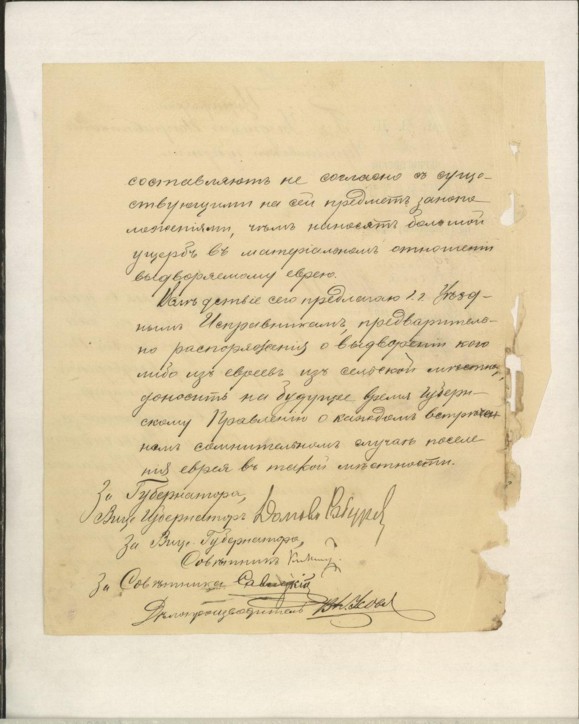 составляютъ не согласно съ суще-
ствующими на сей предметъ законо-
положеніями, чѣмъ наносятъ большой
ущербъ въ матеріальномъ отношеніи
выдворяемому еврею.
Вслѣдствіе сего предлагаю г.г. Уѣзд-
нымъ Исправникамъ, предварительно
но распоряженія о выдвореніи кого
либо изъ евреевъ изъ сельской мѣстно,
доносить на будущее время Губерн-
скому Правленію о каждомъ встрѣчен
номъ сомнительномъ случаѣ поселе-
нія еврея въ такой мѣстности.
За Губернатора,
Вице Губернаторъ
За Вице Губернатора,
Совѣтникъ
За Совѣтника Савицкій
Дѣлопроизводитель